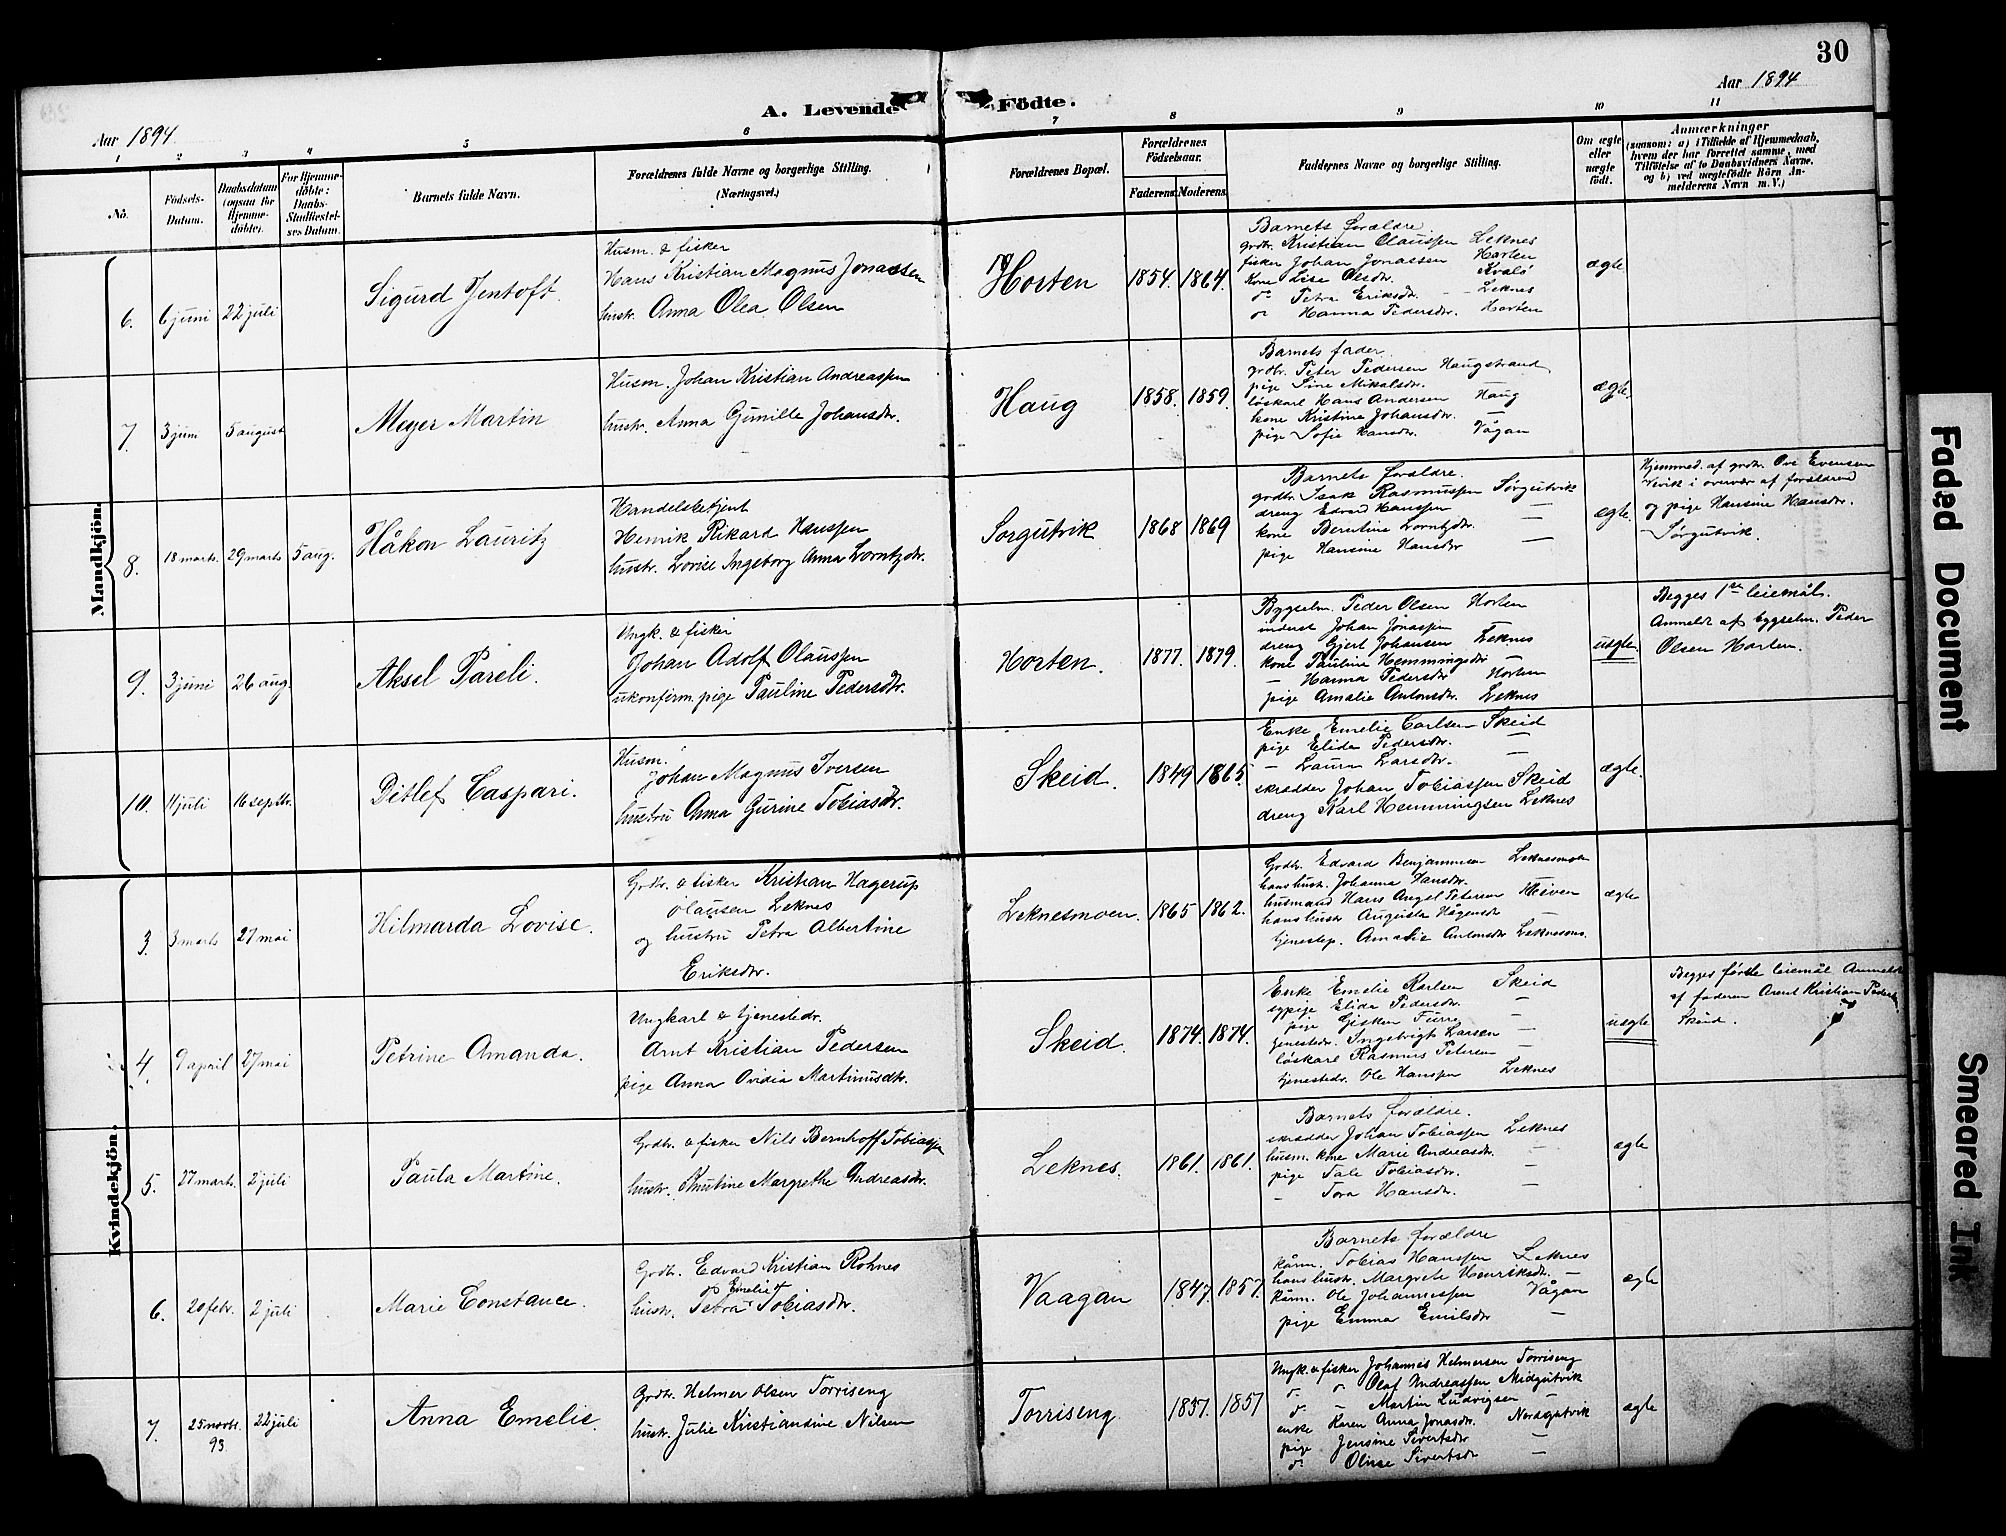 30
Aar 1894
A. Levende Födte.
Aar 1894
1 2 3 4 5 6 7 8 9 10 11
No.
Födsels-Datum.
Daabsdatum (ogsaa for Hjemme-döbte).
For Hjemme-döbte: Daabs-Stadfæstel-ses Datum.
Barnets fulde Navn.
Forældrenes fulde Navne og borgerlige Stilling.
(Næringsvei.)
Forældrenes Bopæl.
Forældrenes Födselsaar.
Faderens. Moderens.
Faddernes Navne og borgerlige Stilling.
Om ægte eller uægte födt.
Anmærkninger
(saasom: a) i Tilfælde af Hjemmedaab,
hvem der har forrettet samme, med
Tilföielse af to Daabsvidners Navne.
og b) ved uægtefödte Börn An-
melderens Navn m. V.)
Mandkjön.
6. 6 juni 22 juli
Sigurd Jentoft.
Husm. & fisker
Hans Kristian Magnus Jonassen
hustr. Anna Olea Olsen
Horten 1854. 1864.
Barnets forældre.
grdbr. Kristian Olaussen Leknes
fisker Johan Jonassen Horten
kone Lise Olsdtr. Kvalö
do Petra Eriksdtr. Leknes
do Hanna Pedersdtr. Horten
ægte
7. 3 juni 5 august
Meyer Martin
Husm. Johan Kristian Andreassen
hustr. Anna Gunille Johansdtr.
Haug 1858. 1859.
Barnets fader.
grdbr. Peter Pedersen Haugstrand
pige Sine Mikalsdtr. —
löskarl Hans Andersen Haug
kone Kristine Johansdtr. —
pige Sofie Hansdtr. Vågan
ægte.
8. 18 marts. 29 marts 5 aug.
Håkon Lauritz
Handelsbetjent
Henrik Rikard Hanssen
hustr. Lovise Ingeborg Anna Lorntzdtr.
Sørgutvik 1868 1869
Barnets forældre.
grdbr. Isak Rasmussen Sørgutvik
dreng Edvard Hanssen —
kone Berntine Lorntzdtr.
pige Hansine Hansdtr —
ægte.
Hjemmed. af grdbr. Ove Evensen
Vevik i overvær af forældrene
og pige Hansine Hansdtr.
Sørgutvik.
9. 3 juni 26 aug.
Aksel Pareli.
Ungk. & fisker
Johan Adolf Olaussen
ukonfirm. pige Pauline Pedersdtr.
Horten. 1877. 1879.
Bygselm. Peder Olsen Horten
inderst Johan Jonassen —
dreng Gjert Johansen Leknes
kone Pauline Hemmingsdtr —
— Hanna Pedersdtr Horten
pige Amalie Antonsdtr. Leknes
uægte.
Begges 1ste leiemål.
Anmeldt af bygselm. Peder
Olsen Horten.
10. 11 juli 16 septbr.
Ditlef Caspari.
Husm.
Johan Magnus Iversen
hustru Anna Gurine Tobiasdtr.
Skeid. 1849 1865.
Enke Emelie Carlsen Skeid
pige Elida Pedersdtr. —
— Laura Larsdtr. —
skrædder Johan Tobiassen Skeid
dreng Karl Hemmingsen Leknes
ægte.
Kvindekjön.
3. 3 marts 27 mai
Hilmarda Lovise.
Grdbr. & fisker Kristian Hagerup
Olausen Leknes
og hustru Petra Albertine
Eriksdtr.
Leknesmoen. 1865 1862.
Grdbr. Edvard Benjaminsen Leknesmoen
hans hustr. Johanna Hansdtr.
husmand Hans Angel Petersen
hans hustr Augusta Hågensdr —
tjenestep. Amalie Antonsdtr Leknesmo.
ægte
4. 9 april 27 mai
Petrine Amanda.
Ungkarl & tjenestedr.
Arnt Kristian Pedersen
pige Anna Ovidia Martinusdtr.
Skeid. 1874. 1874.
Enke Emelie Karlsen Skeid
sypige Elida Pedersdtr. —
pige Gjisken Furre —
tjenestedr. Ingebrigt Larsen —
löskarl Rasmus Petersen —
tjenestedr. Ole Hanssen Leknes
uægte
Begges første leiemål Anmeldt
af faderen Arent Kristian Peders.
Skeid.
5. 27 marts. 2 juli
Paula Martine.
Grdbr. & fisker Nils Bernhoff Tobiassen
hustr. Knutine Margrethe Andreasdtr.
Leknes. 1861. 1861.
Barnets forældre.
skrædder Johan Tobiassen Leknes
husm. kone Marie Andreasdr. —
pige Tale Tobiasdtr. —
— Tora Hansdtr. —
ægte
6. 20 febr. 2 juli
Marie Constance.
Grdbr. Edvard Kristian Rohnes
hustr. Petra Emelie Tobiasdtr.
Vaagan 1847. 1857.
Barnets forældre
kårm. Tobias Hanssen Leknes
hans hustr. Margrete Henriksdtr. —
kårm. Ole Johannessen Vågan
pige Emma Emilsdtr —
ægte
7. 25 novbr. 93. 22 juli
Anna Emelie.
Grdbr. Helmer Olsen Torriseng
hustr. Julie Kristiandine Nilsen
Torriseng. 1857. 1857
Ungk. & fisker Johannes Helmersen Torriseng
do do Olaf Andreassen Midgutvik
do — Martin Ludvigsen —
enke Karen Anna Jonasdr. Nordgutvik
pige Jensine Sivertsdtr —
do Oline Sivertsdtr —
ægte
Faded Document
Smeared Ink